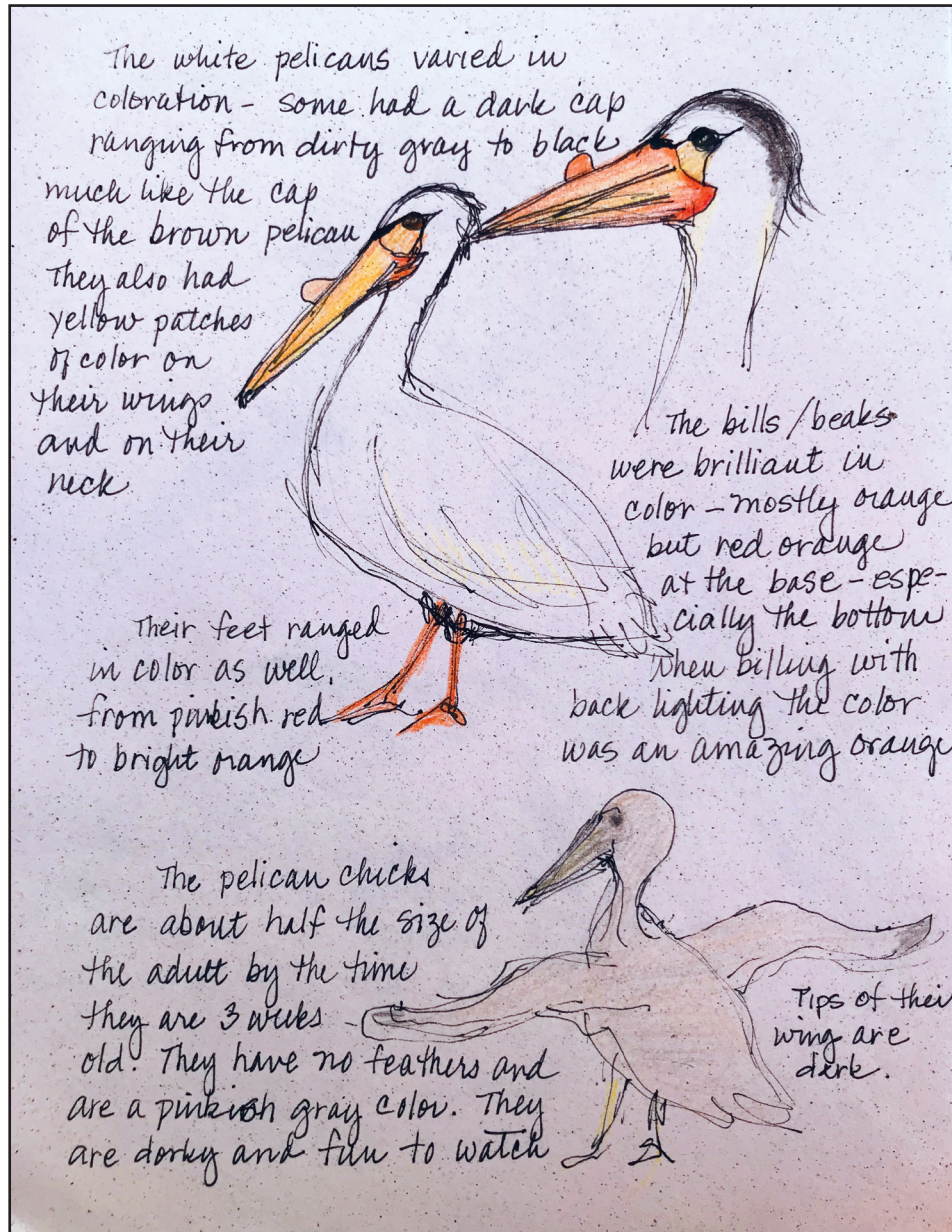 The white pelicans varied in
coloration - some had a dark cap
ranging from dirty gray to black
much like the cap
of the brown pelican
They also had
yellow patches
of color on
their wings
and on their
neck
The bills/beaks
were brilliant in
color - mostly orange
but red orange
at the base - espe-
cially the bottom
when billing with
back lighting the color
was an amazing orange
Their feet ranged
in color as well,
from pinkish red
to bright orange
The pelican chicks
are about half the size of
the adult by the time
they are 3 weeks
old. They have no feathers and
are a pinkish gray color. They
are dorky and fun to watch
Tips of their
wing are
dark.